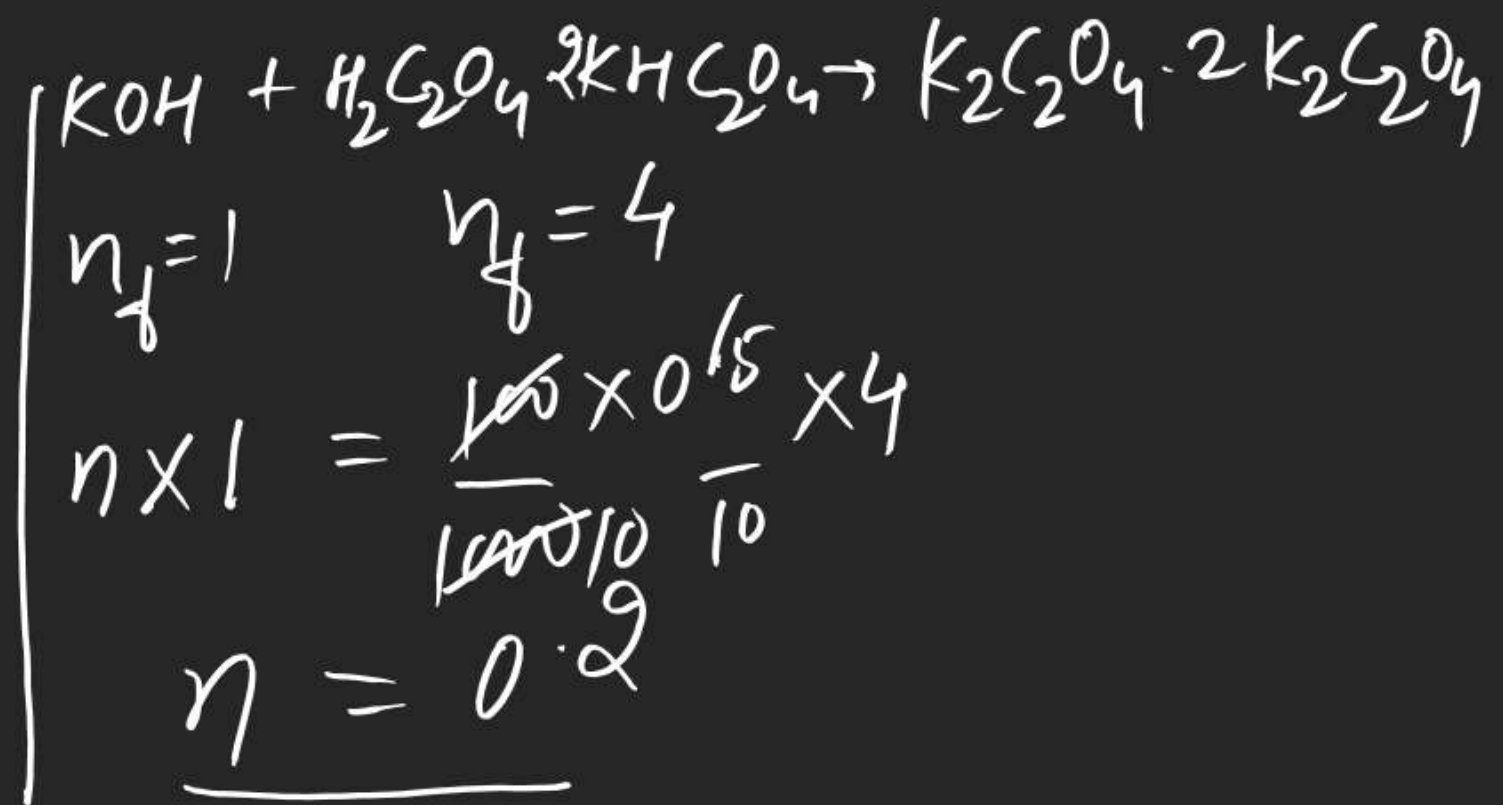 KOH + H₂C₂O₄ 2KHC₂O₄ → K₂C₂O₄ · 2 K₂C₂O₄
n_f = 1 n_f = 4
n × 1 = 100/1000 10 × 0 15/10 × 4
n = 0.2